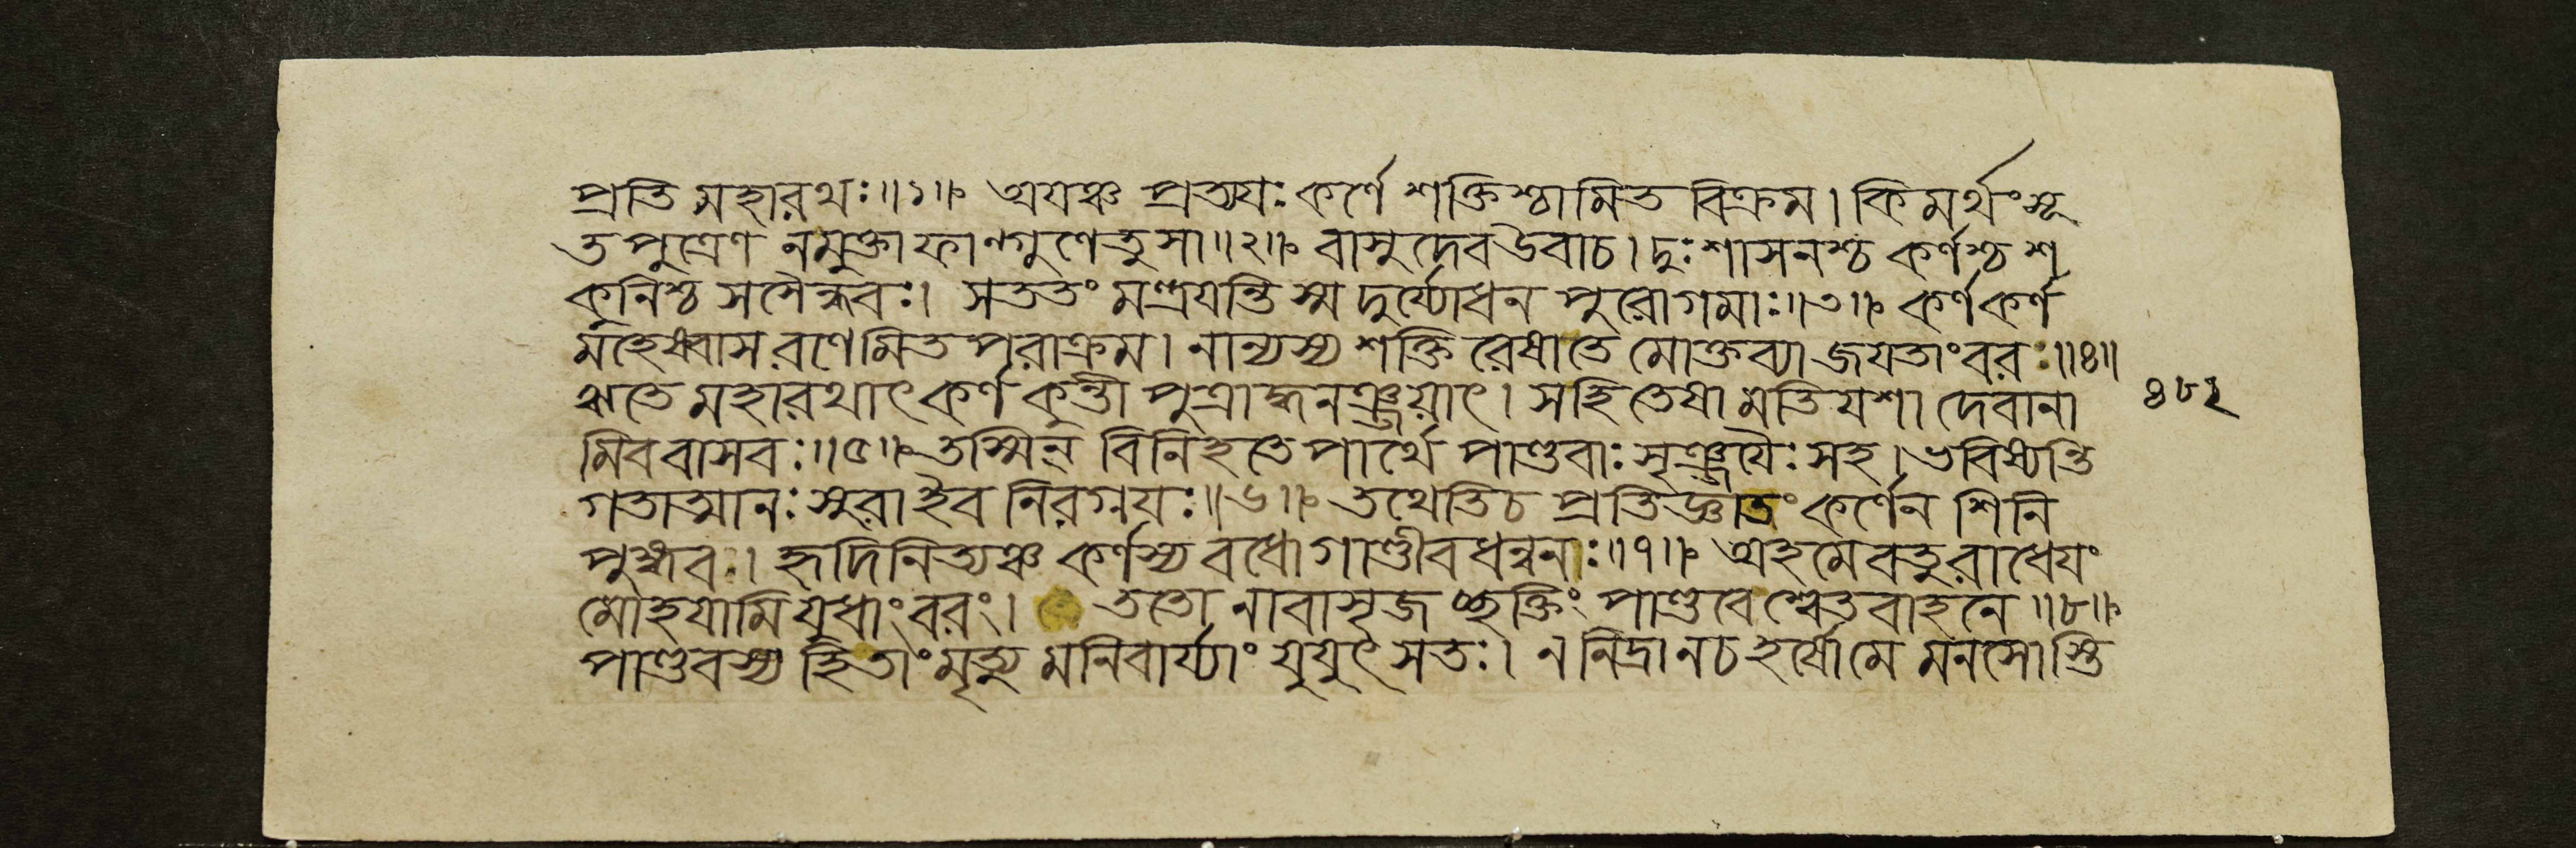 প্রতি মহারথঃ॥১॥ অযঞ্চ প্রত্যযঃ কর্ণে শক্তিশ্চামিত বিক্রম। কিমর্থং সূ
ত পুত্রেণ নমুক্তা ফাণ্গুণেতুসা॥২॥ বাসুদেব উবাচ। দুঃশাসনশ্চ কর্ণশ্চ শ
কুনিশ্চ সসৈন্ধবঃ। সততং মন্ত্রযন্তি স্ম দুর্য্যোধন পুরোগমাঃ॥৩॥ কর্ণ কর্ণ
মহেষ্বাস রণেমিত পরাক্রম। নান্যস্য শক্তি রেষাতে মোক্তব্যা জযতাংবরঃ॥৪॥
ঋতে মহারথাৎ কর্ণ কুন্তী পুত্রাদ্ধনঞ্জয়াৎ। সহি তেষা মতিযশা দেবানা
মিব বাসবঃ॥৫॥ তস্মিন্ বিনিহতে পার্থে পাণ্ডবাঃ সৃঞ্জযৈঃ সহ। ভবিষ্যন্তি
গতাত্মানঃ সুরাইব নিরগ্নযঃ॥৬॥ তথেতিচ প্রতিজ্ঞাতং কর্ণেন শিনি
পুঙ্গব। হৃদিনিত্যঞ্চ কর্ণস্য বধো গাণ্ডীবধন্বনঃ॥৭॥ অহমেবতু রাধেযং
মোহযামি যুধাংবরং। ততো নাবাসৃজ চ্ছক্তিং পাণ্ডবে শ্বেতবাহনে॥৮॥
পাণ্ডবস্য হিতাং মৃত্যু মনিবার্য্যাং যুযুৎ সতঃ। ন নিদ্রা নচ হর্ষোমে মনসোস্তি
৪৮২